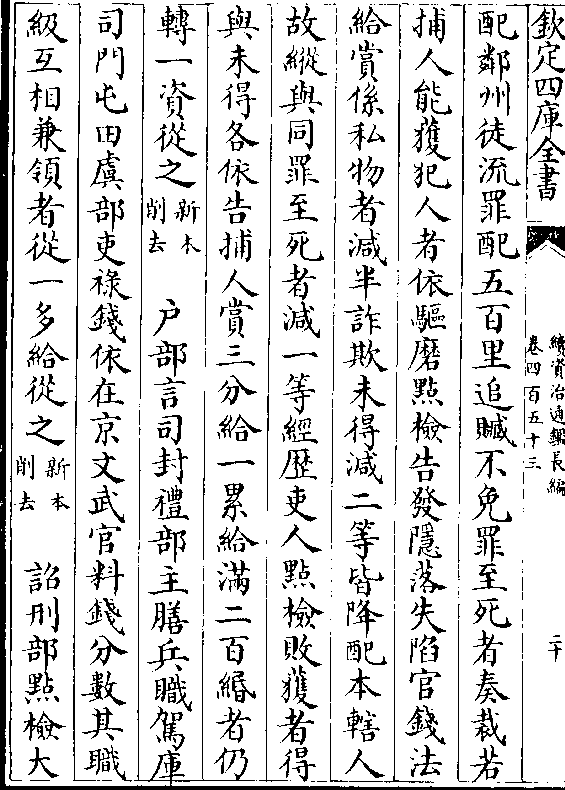 欽定四庫全書
續資治通鑑長編
卷四百五十三
二十
配鄰州徒流罪配五百里追贓不免罪至死者奏裁若
捕人能獲犯人者依驅磨點檢告發隱落失陷官錢法
給賞係私物者減半詐欺未得減二等皆降配本轄人
故縱與同罪至死者減一等經歷吏人點檢敗獲者得
與未得各依告捕人賞三分給一累給滿二百緡者仍
轉一資從之新本削去 户部言司封禮部主膳兵職駕庫
司門屯田虞部吏祿錢依在京文武官料錢分數其職
級互相兼領者從一多給從之新本削去 詔刑部點檢大